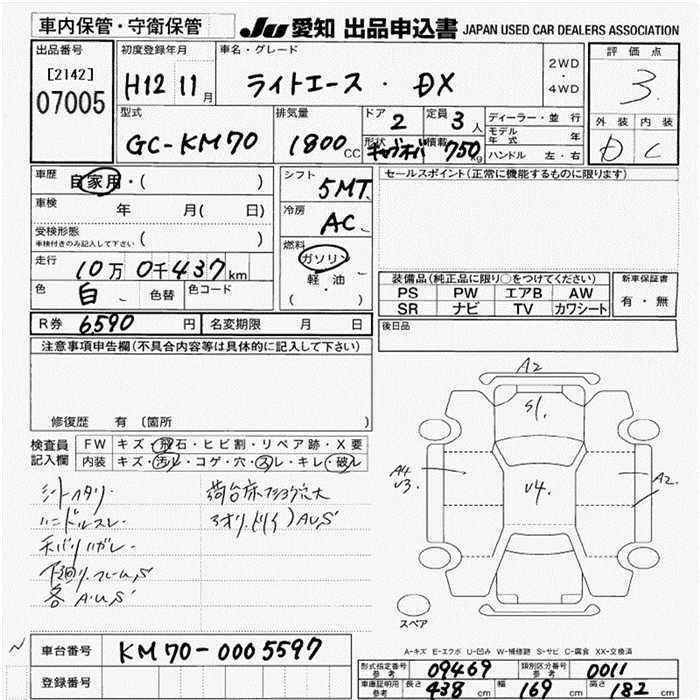 車内保管・守衛保管
JU 愛知 出品申込書 JAPAN USED CAR DEALERS ASSOCIATION
出品番号
[2142]
07005
初度登録年月
H12 11月
車名・グレード
ライトエース ・ DX
2WD
・
4WD
評価点
3.
型式
GC-KM70
排気量
1800CC
ドア
2
定員
3人
形状
積載
750kg
ディーラー・並行
モデル年式 年
ハンドル 左・右
外装 内装
D C
車歴
自家用・( )
車検
年 月( 日)
受検形態
車検付きのみ記入して下さい ( )
走行
10万 0千437km
色
白
色替
色コード
シフト
5MT
冷房
AC
燃料
ガソリン
軽・油
( ・ )
セールスポイント(正常に機能するものに限ります)
装備品(純正品に限り○をつけてください)
PS PW エアB AW
SR ナビ TV カワシート
新車保証書
有・無
R券 6590 円
名変期限 月 日
後日品
注意事項申告欄(不具合内容等は具体的に記入して下さい)
修復歴 有 (箇所 )
検査員
記入欄
FW キズ・飛石・ヒビ割・リペア跡・X要
内装 キズ・汚レ・コゲ・穴・スレ・キレ・破レ
シートヘタリ
ハンドルスレ
下回リ.フレームS
各A.U.S
A2
S1.
A4
U3.
U4.
A2.
スペア
A-キズ E-エクボ U-凹み W-補修跡 S-サビ C-腐食 XX-交換済
車台番号 KM70-0005597
登録番号
型式指定番号 参考 09469
類別区分番号 参考 0011
車庫証明用 参考 長さ 438 cm 幅 169 cm 高さ 182 cm